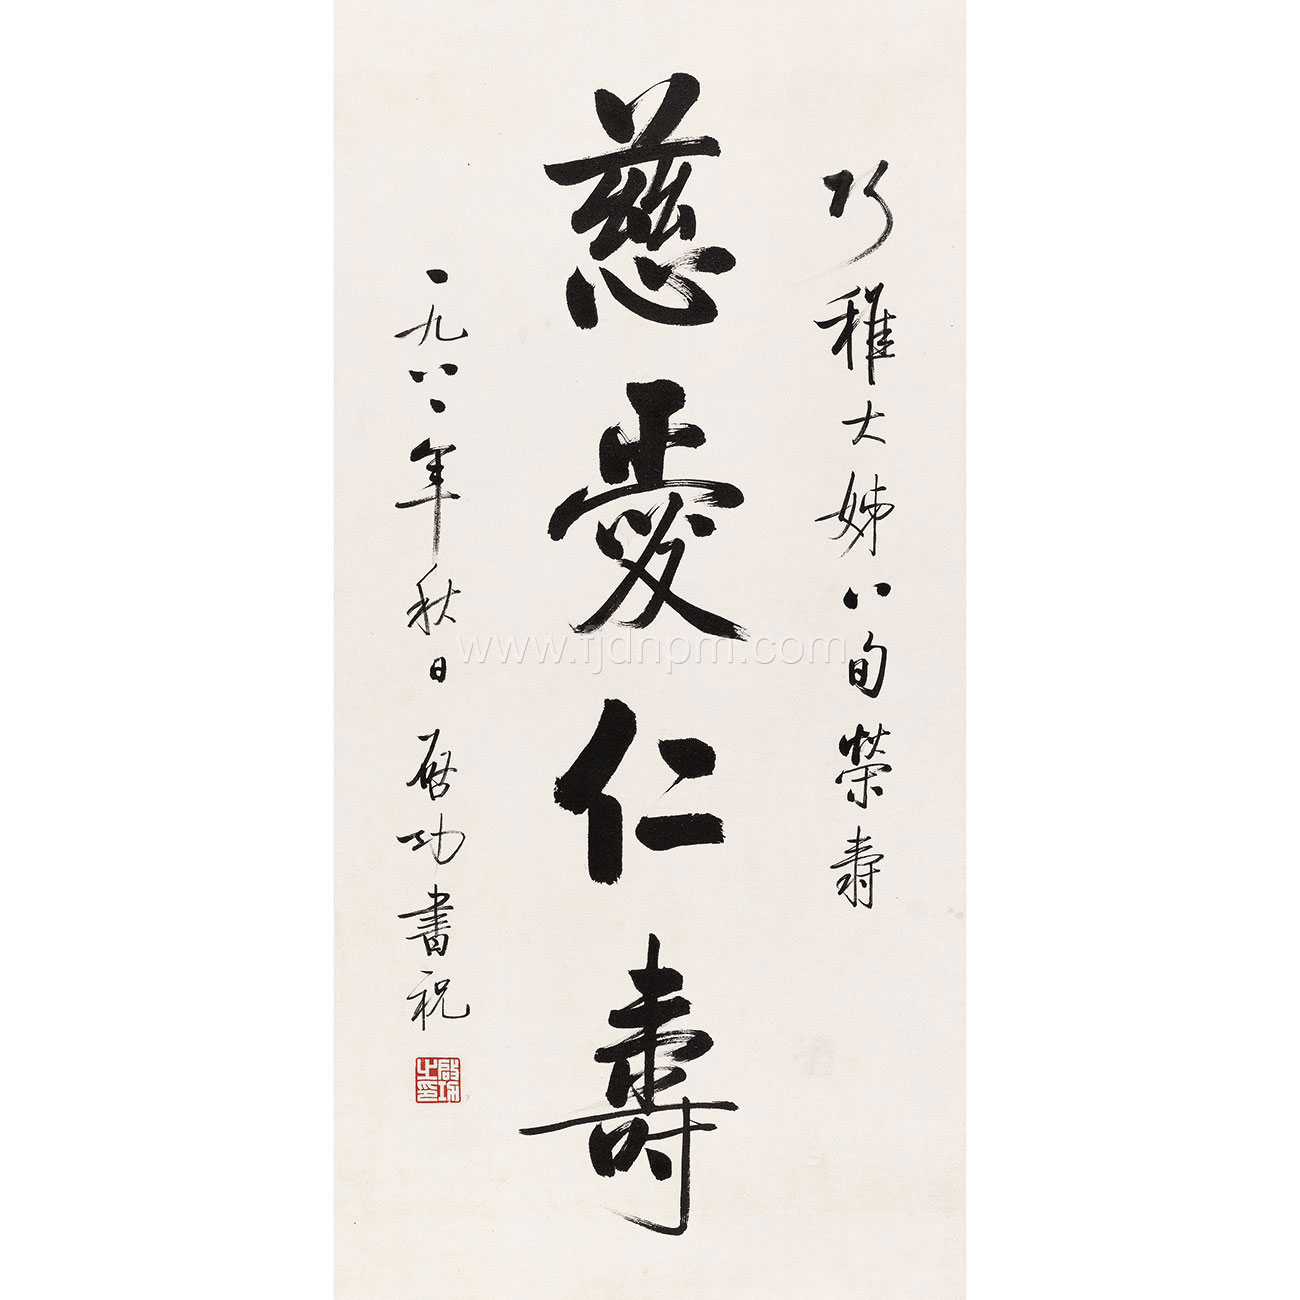 巧稚大姊八旬榮壽
慈愛仁壽
一九八一年秋日啓功書祝
啟功之印
www.fjdnpm.com